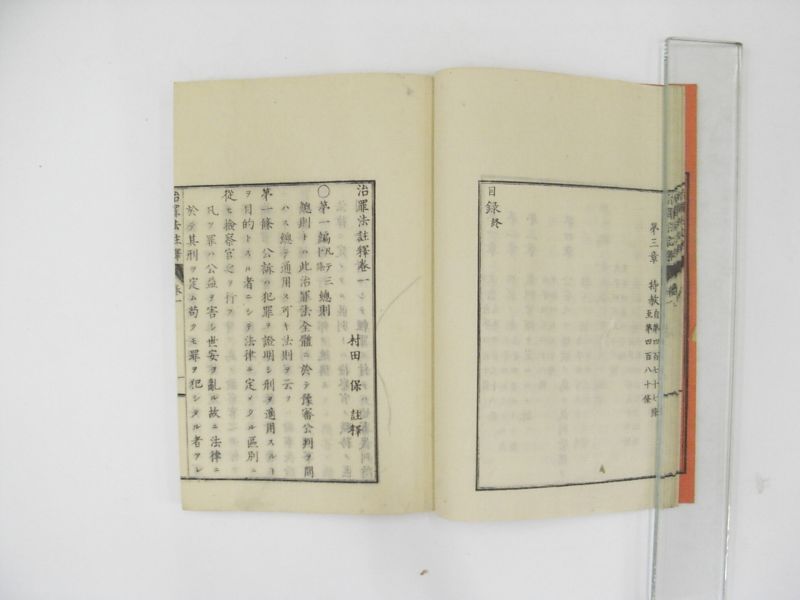 第三章 特赦自第四百七十七條至第四百八十條
目錄終
治罪法註釋卷一
村田保 註釋
〇第一編 總則
總則トハ此治罪法全體ニ於テ豫審公判ヲ問
ハス總テ適用ス可キ法則ヲ云フ
第一條 公訴ハ犯罪ヲ證明シ刑ヲ適用スルㄱ
ヲ目的トスル者ニシテ法律ニ定メタル區別ニ
從ヒ檢察官之ヲ行フ
凡ソ罪ハ公益ヲ害シ世安ヲ亂ル故ニ法律ニ
於テ其刑ヲ定ム苟クモ罪ヲ犯シタル者アレ
治罪法註釋 卷一